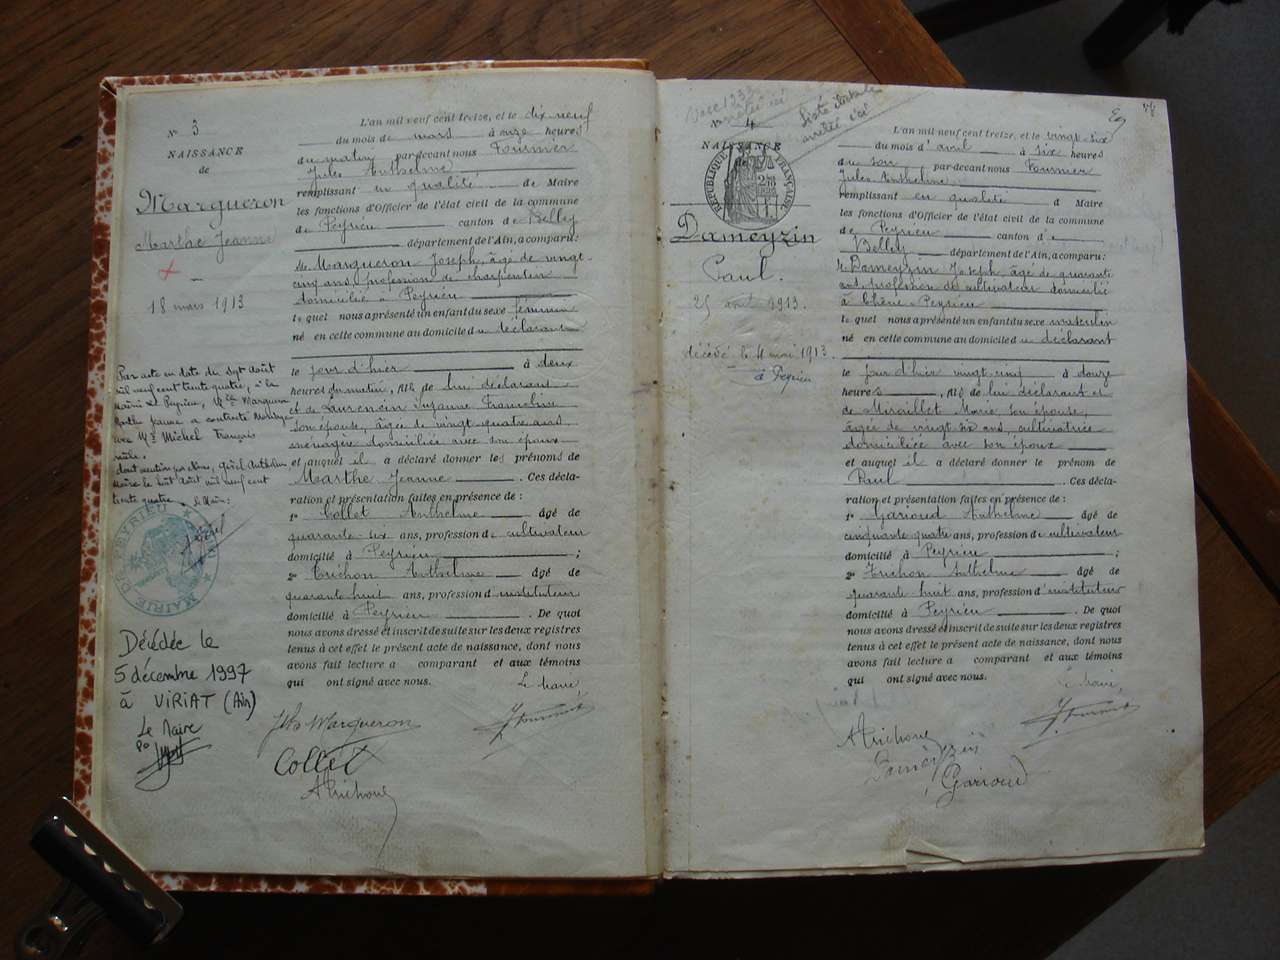 N° 3
NAISSANCE
de
Margueron
Marthe Jeanne
18 mars 1913
Par acte en date du sept août
mil neuf cent trente quatre, à la
Mairie de Peyrieu, Melle Margueron
Marthe Jeanne a contracté Mariage
avec Mr Michel François
dont mention par Nous, Anthelme
Maire le huit août mil neuf cent
trente quatre. Le Maire:
MAIRIE DE PEYRIEU
AIN
Décédée le
5 décembre 1997
à VIRIAT (Ain)
Le Maire
po
L'an mil neuf cent treize, et le dix-neuf
du mois de mars à onze heures
du matin par-devant nous Fournier
Jules Anthelme
remplissant en qualité de Maire
les fonctions d'Officier de l'état civil de la commune
de Peyrieu canton de Belley
département de l'Ain, a comparu:
Margueron Joseph, âgé de vingt-
cinq ans, profession de charpentier
domicilié à Peyrieu
lequel nous a présenté un enfant du sexe féminin
né en cette commune au domicile du déclarant
le jour d'hier à deux
heures du matin, fille de lui déclarant
et de Laurencin Suzanne Francoline
son épouse, âgée de vingt-quatre ans
ménagère domiciliée avec son époux
et auquel il a déclaré donner les prénoms de
Marthe Jeanne . Ces décla-
ration et présentation faites en présence de :
1° Collet Anthelme âgé de
quarante-six ans, profession de cultivateur
domicilié à Peyrieu ;
2° Trichon Anthelme âgé de
quarante huit ans, profession d'instituteur
domicilié à Peyrieu . De quoi
nous avons dressé et inscrit de suite sur les deux registres
tenus à cet effet le présent acte de naissance, dont nous
avons fait lecture a comparant et aux témoins
qui ont signé avec nous. Le Maire,
Jph Margueron
J Fournier
Collet
A Trichon
78
liste
arrêtée ici
N° 4
NAISSANCE
de
RÉPUBLIQUE FRANÇAISE
Dameyzin
Paul.
25 avril 1913.
décédé le 4 mai 1913.
à Peyrieu
L'an mil neuf cent treize, et le vingt-six
du mois d'avril à six heures
du soir par-devant nous Fournier
Jules Anthelme
remplissant en qualité d Maire
les fonctions d'Officier de l'état civil de la commune
de Peyrieu canton de
Belley département de l'Ain, a comparu:
Dameyzin Joseph, âgé de quarante
ans, profession de cultivateur domicilié
à Peyrieu
lequel nous a présenté un enfant du sexe masculin
né en cette commune au domicile du déclarant
le jour d'hier vingt-cinq à douze
heures , fils de lui déclarant et
de Miraillet Marie son épouse,
âgée de vingt six ans, cultivatrice
domiciliée avec son époux
et auquel il a déclaré donner le prénom de
Paul . Ces décla-
ration et présentation faites en présence de :
1° Garioud Anthelme âgé de
cinquante quatre ans, profession de cultivateur
domicilié à Peyrieu ;
2° Trichon Anthelme âgé de
quarante huit ans, profession d'instituteur
domicilié à Peyrieu . De quoi
nous avons dressé et inscrit de suite sur les deux registres
tenus à cet effet le présent acte de naissance, dont nous
avons fait lecture a comparant et aux témoins
qui ont signé avec nous. Le Maire,
J Fournier
A Trichon
Dameyzin
Garioud